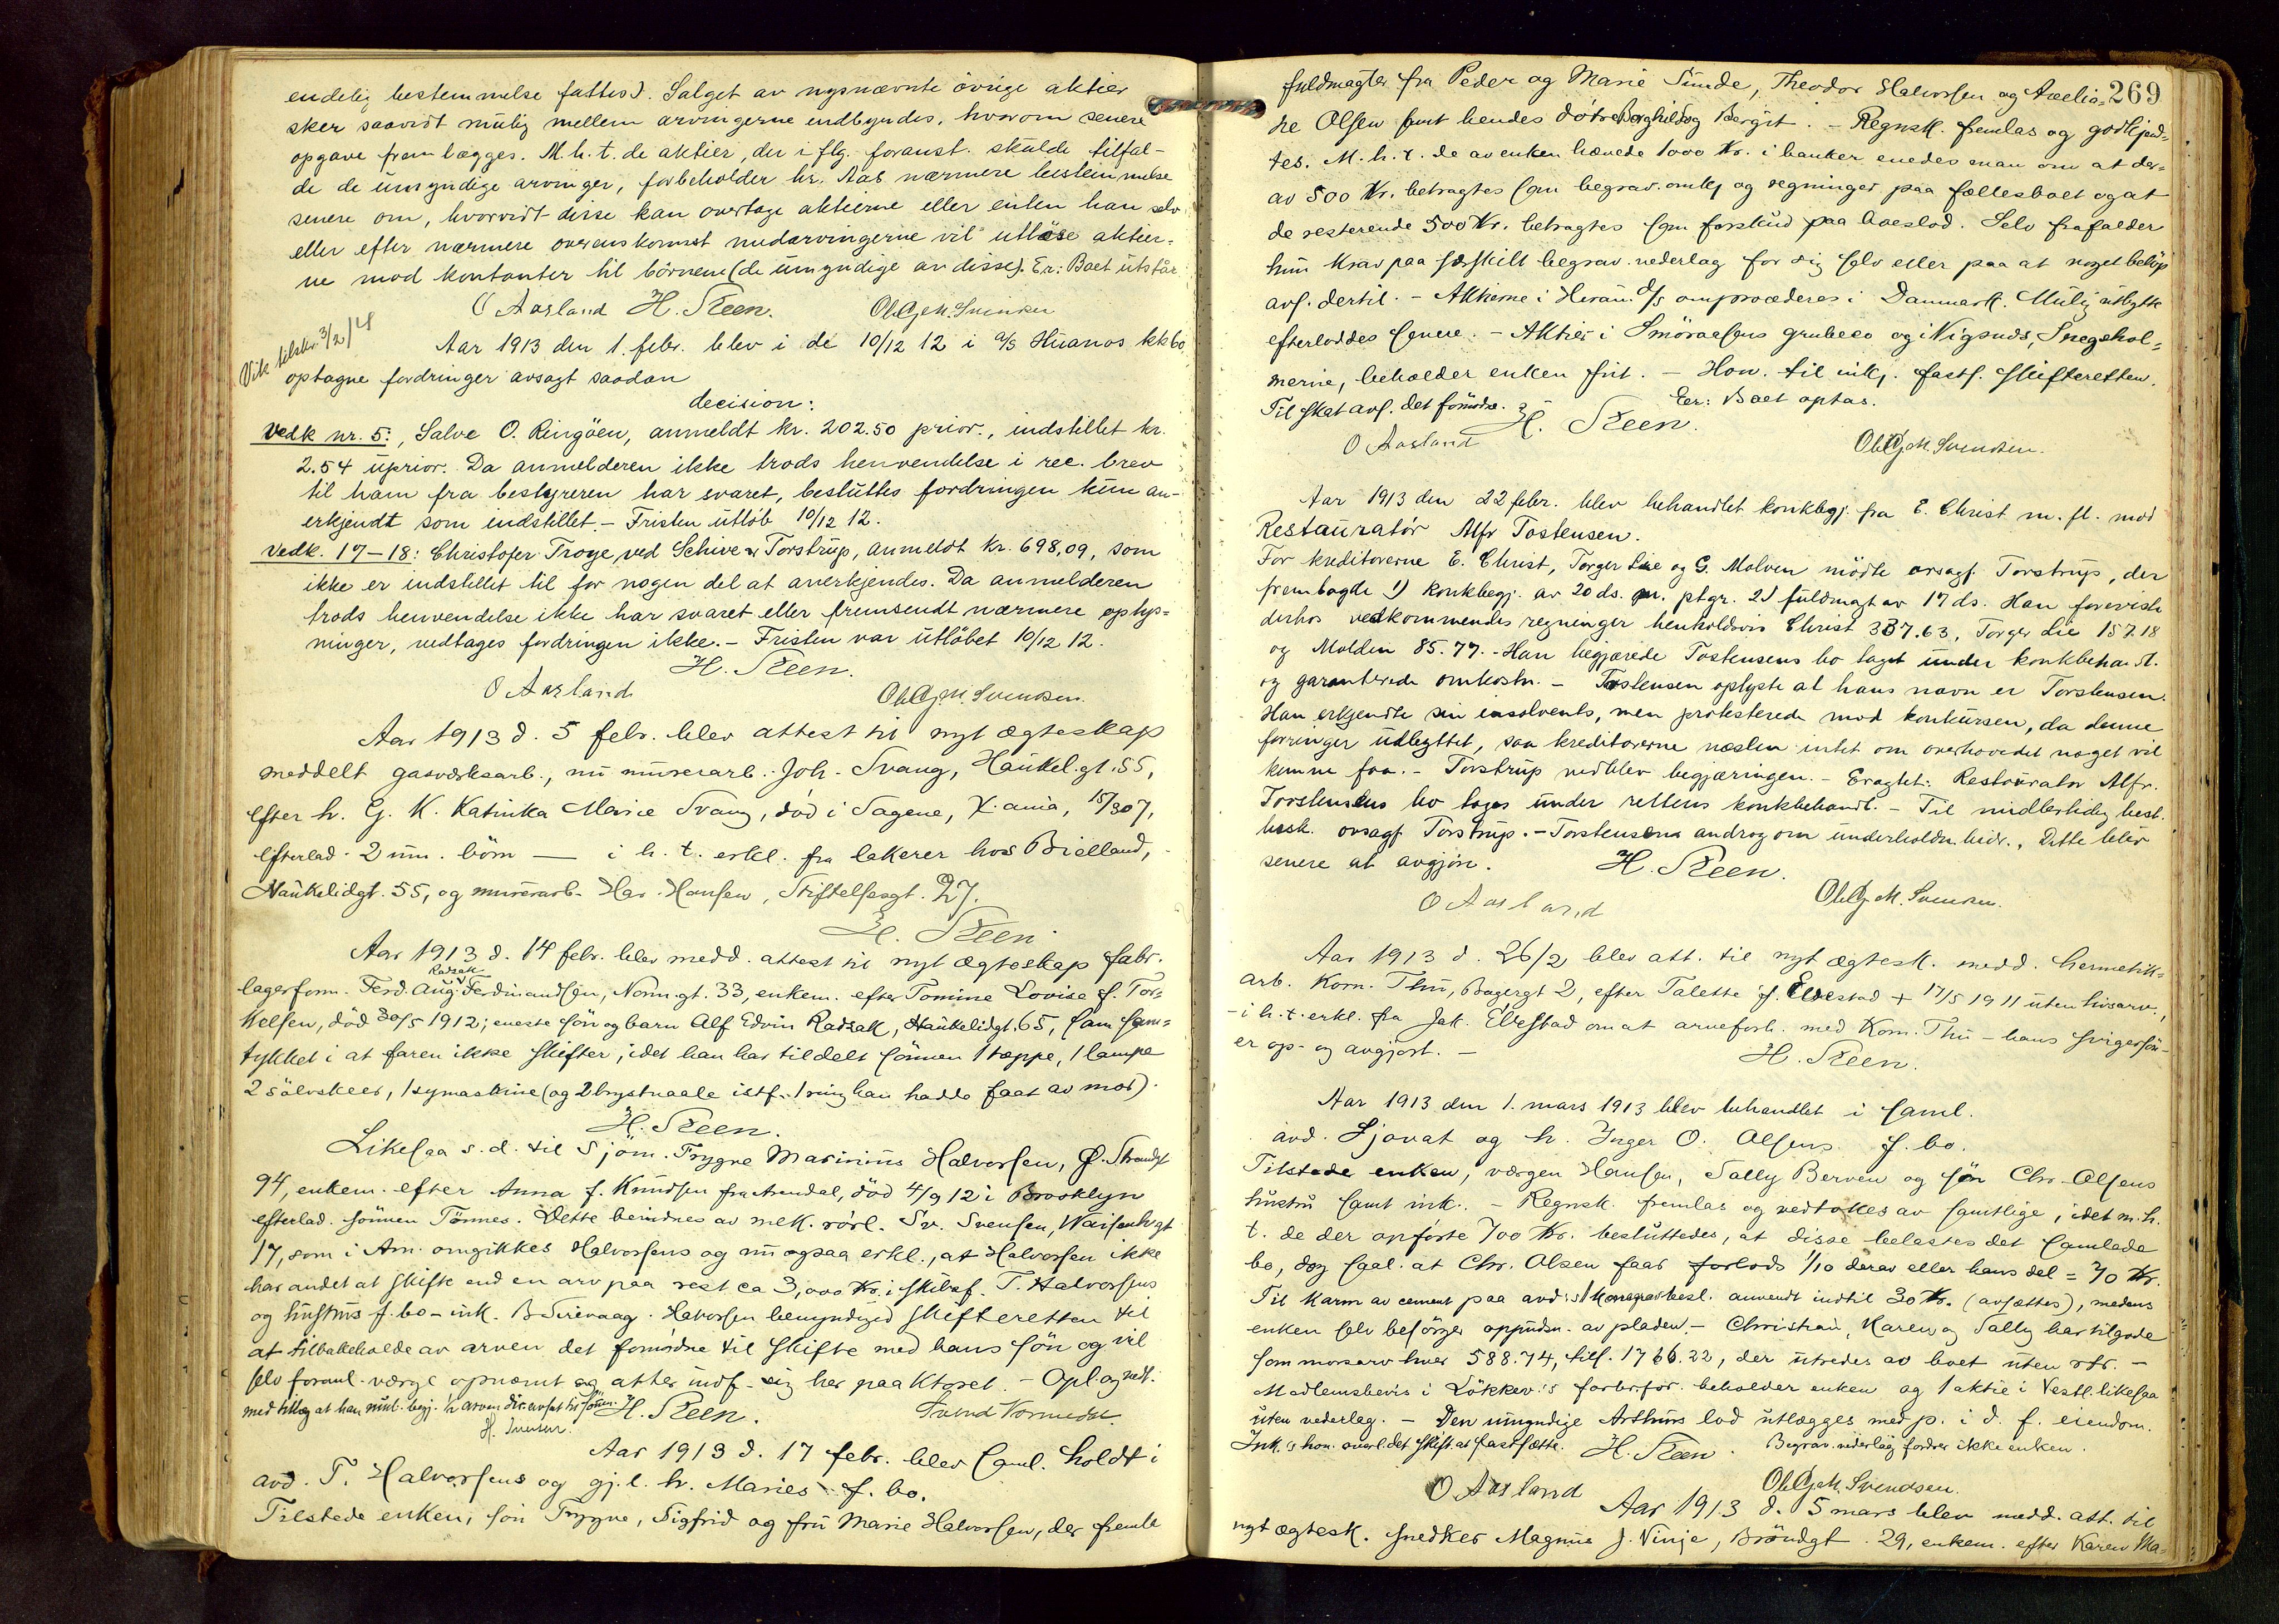 endelig bestemmelse fattes). Salget av nysnævnte övrige aktier
sker saavidt mulig mellem arvingerne indbyrdes, hvorom senere
opgave fremlægges. M.h.t. de aktier, der i flg. foranst. skulde tilfal-
de de umyndige arvinger, forbeholder hr. Aas nærmere bestemmelse
senere om, hvorvidt disse kan overtage aktierne eller enten han selv
eller efter nærmere overenskomst medarvingerne vil utløse aktier-
ne mod kontanter til börnene (de umyndige av disse). Er: Boet utstaar
O Aasland H. Steen. Ole Chr. M. Svendsen
Vik tilskr. 3/2 14
Aar 1913 den 1. febr. blev i de 10/12 12 i a/s Huanos kkbo
optagne fordringer avsagt saadan
decision:
Vedk nr. 5:, Salve O. Ringöen, anmeldt kr. 202.50 prior., indstillet kr.
2.54 uprior. Da anmelderen ikke trods henvendelse i rec. brev
til ham fra bestyreren har svaret, besluttes fordringen kun an-
erkjendt som indstillet. - Fristen utløb 10/12 12.
Vedk. 17-18: Christofer Troye, ved Schive & Torstrup, anmeldt kr. 698,09, som
ikke er indstillet til for nogen del at anerkjendes. Da anmelderen
trods henvendelse ikke har svaret eller fremsendt nærmere oplys-
ninger, vedtages fordringen ikke. - Fristen var utløbet 10/12 12.
H. Steen.
O Aasland Ole Chr. M. Svendsen.
Aar 1913 d. 5 febr. blev attest til nyt ægteskap
meddelt gasværksarb., nu murerarb. Joh. Svang, Haukel.gt. 55,
efter h. G. K. Katinka Marie Svang, död i Sagene, X.ania, 15/3 07,
efterlad. 2 um. börn — i h. t. erkl. fra lakerer hos Bielland,
Haukelidgt. 55, og murerarb. Har. Hansen, Stiftelsesgt. 27.
H. Steen
Aar 1913 d. 14 febr. blev medd. attest til nyt ægteskap fabr.
lagerform. Ferd. Aug. Radzak Ferdinandsen, Norm.gt. 33, enkem. efter Tomine Lovise f. Tor-
kelsen, död 30/5 1912; eneste sön og barn Alf Edvin Radzak, Haukelidgt. 65, har sam-
tykket i at faren ikke skifter, idet han har tildelt sönnen 1 tæppe, 1 lampe
2 sölvskeer, 1 symaskine (og 2 brystnaale istf. 1 ring han hadde faat av mor).
H. Steen.
Likesaa s. d. til sjöm. Trygve Marinius Halvorsen, Ø. Strandgt
94, enkem. efter Anna f. Knudsen fra Arendal, död 4/9 12 i Brooklyn
efterlad. sönnen Tönnes. Dette bevidnes av mek. rörl. Sv. Svensen, Waisenh.gt
17, som i Am. omgikkes Halvorsens og nu ogsaa erkl., at Halvorsen ikke
har andet at skifte end en arv paa rest ca 3,000 Kr. i skibsf. T. Halvorsens
og hustrus f. bo - ink. B Sirevaag. Halvorsen bemyndiged skifteretten til
at tilbakeholde av arven det fornödne til skifte med hans sön og vil
selv foranl. værge opnævnt og atter indf. sig her paa Ktoret. - Opl. og vedt.
med tillæg at han mul. begj. 1/2 arven dir. avsat til sönnen. H. Steen.
Aar 1913 d. 17 febr. blev saml. holdt i
avd. T. Halvorsens og gj. l. h. Maries f. bo.
Tilstede enken, sön Trygve, Sigfrid og fru Marie Halvorsen, der fremla
269
fuldmagter fra Peder og Marie Sunde, Theodor Halvorsen og Aurelia-
ne Olsen samt hendes døtre Borghild og Bergit. - Regnsk. fremlas og godkjend-
tes. M.h.t. de av enken hævede 1000 Kr. i banker enedes man om at der-
av 500 Kr. betragtes som begrav. omk. og regninger paa fællesboet og at
de resterende 500 Kr. betragtes som forskud paa boeslod. Selv frafalder
hun krav paa særskilt begrav. vederlag for sig selv eller paa at noget beløp
avs. dertil. - Aktierne i Heran. d/s omprocederes i Danmark. Mulig utbytte
efterloddes senere. - Aktier i Smöraasens grubeco og i Nigsuds, Snegehol-
merne, beholder enken frit. - Hon. til ink. fasts. skifteretten.
Til skat avs. det fornødne. Eer: Boet optas.
H. Steen.
O Aasland Ole Chr. M. Svendsen.
Aar 1913 den 22 febr. blev behandlet konkbegj. fra E. Christ m. fl. mod
Restauratör Alfr Tostensen.
For kreditorerne E. Christ, Torger Lie og G. Molven mödte orsagf. Torstrup, der
frembragde 1) konkbegj. av 20 ds. m. ptgr. 2) fuldmagt av 17 ds. Han foreviste
derhos vedkommendes regninger henholdsvis Christ 337.63, Torger Lie 157.18
og Molden 85.77. - Han begjærede Tostensens bo taget under konkbehandl.
og garanterede omkostn. - Tostensen oplyste at hans navn er Torstensen.
Han erkjendte sin insolvents, men protesterede mod konkursen, da denne
forringer udbyttet, saa kreditorerne næsten intet om overhovedet noget vil
kunne faa. - Torstrup vedblev begjæringen. - Eragtet: Restaurator Alfr.
Torstensens bo tages under rettens konkbehandl. - Til midlertidig best.
besk. orsagf Torstrup. - Torstensens androg om underholdn. bidr., Dette blev
senere at avgjøre. H. Steen.
O Aasland Ole Chr. M. Svendsen.
Aar 1913 d. 26/2 blev att. til nyt ægtesk. medd. hermetik-
arb. Korn. Thu, Bagergt 2, efter Talette f. Elvestad + 17/5 1911 uten livsarv.,
- i h. t. erkl. fra Jak. Elvestad om at arveforh. med Korn. Thu - hans svigersön -
er op- og avgjort. - H. Steen.
Aar 1913 den 1. mars 1913 blev behandlet i saml.
avd. Sjovat og h. Inger O. Olsens f. bo.
Tilstede enken, værgen Hansen, Sally Berven og sön Chr. Olsens
hustru samt ink. - Regnsk. fremlas og vedtokes av samtlige, idet m. h.
t. de der opførte 700 Kr. besluttedes, at disse belastes det samlede
bo, dog saal. at Chr. Olsen faar forlods 1/10 derav eller hans del = 70 Kr.
Til karm av cement paa avd:s gravsted besl. anvendt indtil 30 Kr. (avsættes), medens
enken selv besörger oppudsn. av pladen. - Christian, Karen og Sally har tilgode
som morsarv hver 588.74, tils. 1766.22, der utredes av boet uten rtr. -
Medlemsbevis i Lökkev:s forbrfor. beholder enken og 1 aktie i Vestl. likesaa
uten vederlag. - Den umyndige Arthurs lod utlægges med p. i d. f. eiendom.
Ink.:s hon. overl. det skift. at fastsætte. H. Steen. Begrav. vederlag fordrer ikke enken.
O Aasland Ole Chr. M. Svendsen.
Aar 1913 d. 5 mars blev medd. att. til
nyt ægtesk. snedker Magnus J. Vinje, Bröndgt. 29, enkem. efter Karen Ma-